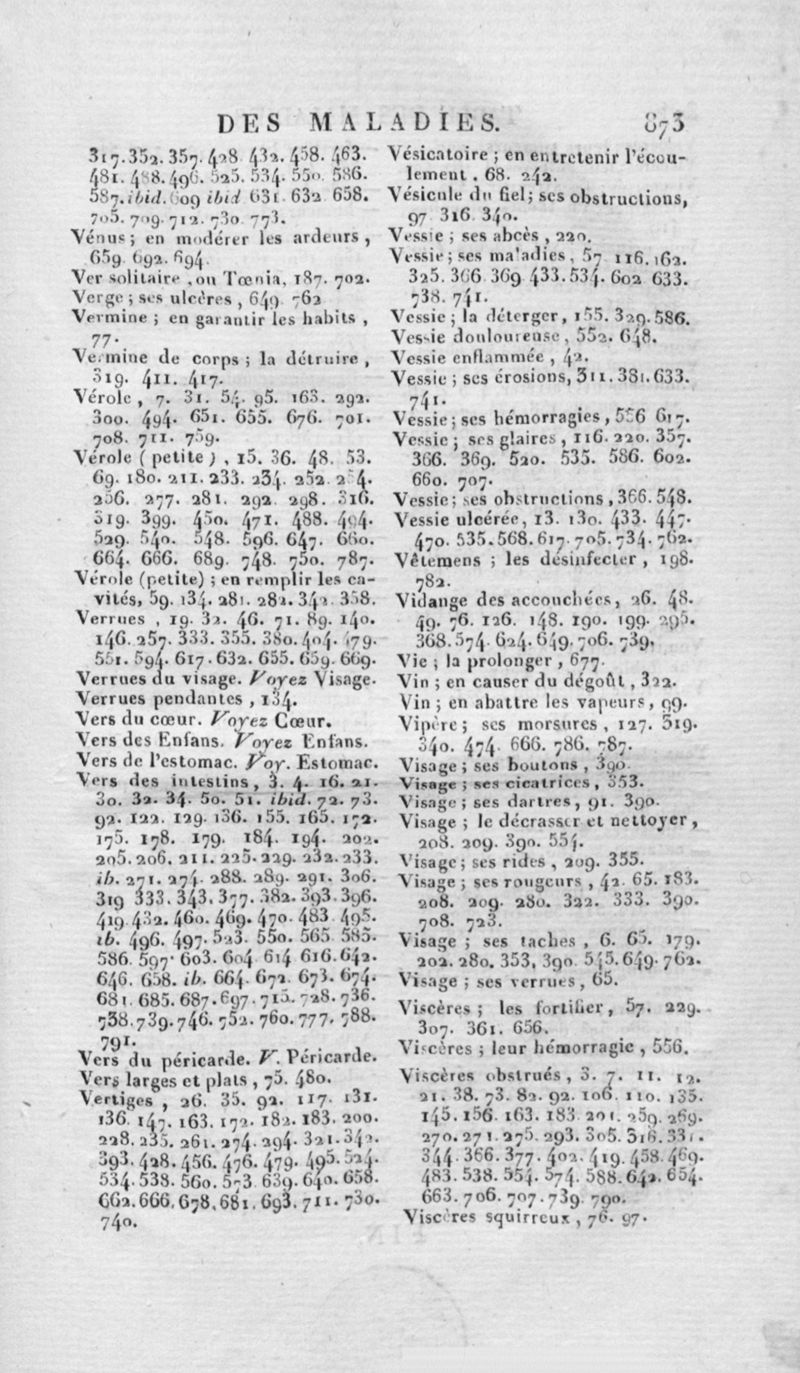 DES MALADIES. 873
317. 352. 357. 428. 432. 458. 463.
481. 488. 496. 525. 534. 550. 586.
587. ibid. 609 ibid 631. 632 658.
705. 709. 712. 730. 773.
Vénus; en modérer les ardeurs,
659. 692. 694.
Ver solitaire, ou Tœnia, 187. 702.
Verge; ses ulcères, 649. 762
Vermine; en garantir les habits,
77.
Vermine de corps; la détruire,
319. 411. 417.
Vérole, 7. 31. 54. 95. 163. 292.
300. 494. 651. 655. 676. 701.
708. 711. 759.
Vérole (petite), 15. 36. 48. 53.
69. 180. 211. 233. 234. 252. 254.
256. 277. 281. 292. 298. 316.
319. 399. 450. 471. 488. 494.
529. 540. 548. 596. 647. 660.
664. 666. 689. 748. 750. 787.
Vérole (petite); en remplir les ca-
vités, 59. 134. 281. 282. 342. 358.
Verrues, 19. 32. 46. 71. 89. 140.
146. 257. 333. 355. 380. 404. 479.
551. 594. 617. 632. 655. 659. 669.
Verrues du visage. Voyez Visage.
Verrues pendantes, 134.
Vers du cœur. Voyez Cœur.
Vers des Enfans. Voyez Enfans.
Vers de l'estomac. Voy. Estomac.
Vers des intestins, 3. 4. 16. 21.
30. 32. 34. 50. 51. ibid. 72. 73.
92. 122. 129. 136. 155. 165. 172.
175. 178. 179. 184. 194. 202.
205. 206. 211. 225. 229. 232. 233.
ib. 271. 274. 288. 289. 291. 306.
319 333. 343. 377. 382. 393. 396.
419. 432. 460. 469. 470. 483. 495.
ib. 496. 497. 523. 550. 565. 585.
586. 597. 603. 604. 614. 616. 642.
646. 658. ib. 664. 672. 673. 674.
681. 685. 687. 697. 715. 728. 736.
738. 739. 746. 752. 760. 777. 788.
791.
Vers du péricarde. V. Péricarde.
Vers larges et plats, 75. 480.
Vertiges, 26. 35. 92. 117. 131.
136. 147. 163. 172. 182. 183. 200.
228. 235. 261. 274. 294. 321. 342.
393. 428. 456. 476. 479. 495. 524.
534. 538. 560. 573. 639. 640. 658.
662. 666. 678. 681. 693. 711. 730.
740.
Vésicatoire; en entretenir l'écou-
lement. 68. 242.
Vésicule du fiel; ses obstructions,
97 316. 340.
Vessie; ses abcès, 220.
Vessie; ses maladies, 57 116. 162.
325. 366 369 433. 534. 602 633.
738. 741.
Vessie; la déterger, 155. 329. 586.
Vessie douloureuse, 552. 648.
Vessie enflammée, 42.
Vessie; ses érosions, 311. 381. 633.
741.
Vessie; ses hémorragies, 556 617.
Vessie; ses glaires, 116. 220. 357.
366. 369. 520. 535. 586. 602.
660. 707.
Vessie; ses obstructions, 366. 548.
Vessie ulcérée, 13. 130. 433. 447.
470. 535. 568. 617. 705. 734. 762.
Vêtemens; les désinfecter, 198.
782.
Vidange des accouchées, 26. 48.
49. 76. 126. 148. 190. 199. 295.
368. 574. 624. 649. 706. 739.
Vie; la prolonger, 677.
Vin; en causer du dégoût, 322.
Vin; en abattre les vapeurs, 99.
Vipère; ses morsures, 127. 319.
340. 474. 666. 786. 787.
Visage; ses boutons, 390.
Visage; ses cicatrices, 353.
Visage; ses dartres, 91. 390.
Visage; le décrasser et nettoyer,
208. 209. 390. 554.
Visage; ses rides, 209. 355.
Visage; ses rougeurs, 42. 65. 183.
208. 209. 280. 322. 333. 390.
708. 723.
Visage; ses taches, 6. 65. 179.
202. 280. 353, 390. 545. 649. 762.
Visage; ses verrues, 65.
Viscères; les fortifier, 57. 229.
307. 361. 656.
Viscères; leur hémorragie, 556.
Viscères obstrués, 3. 7. 11. 12.
21. 38. 73. 82. 92. 106. 110. 135.
145. 156. 163. 183. 201. 259. 269.
270. 271. 275. 293. 305. 318. 331.
344. 366. 377. 402. 419. 458. 469.
483. 538. 554. 574. 588. 642. 654.
663. 706. 707. 739. 790.
Viscères squirreux, 76. 97.